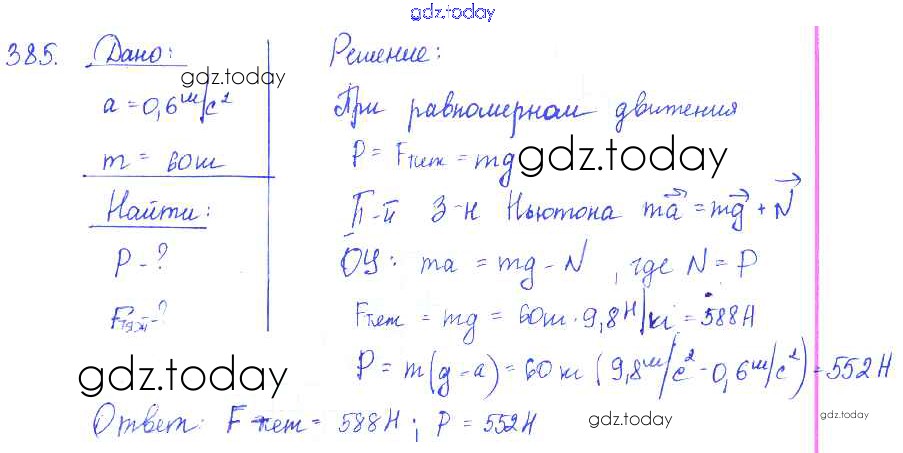 gdz.today
385. Дано:
gdz.today
a = 0,6 м/с²
m = 60 кг
Найти:
P - ?
Fтяж - ?
Решение:
При равномерном движения
P = Fтяж = mg
gdz.today
II-й З-н Ньютона ma = mg + N
ОУ: ma = mg - N, где N = P
Fтяж = mg = 60 кг · 9,8 Н/кг = 588 Н
P = m(g - a) = 60 кг (9,8 м/с² - 0,6 м/с²) = 552 Н
gdz.today
Ответ: Fтяж = 588 Н; P = 552 Н
gdz.today
gdz.today